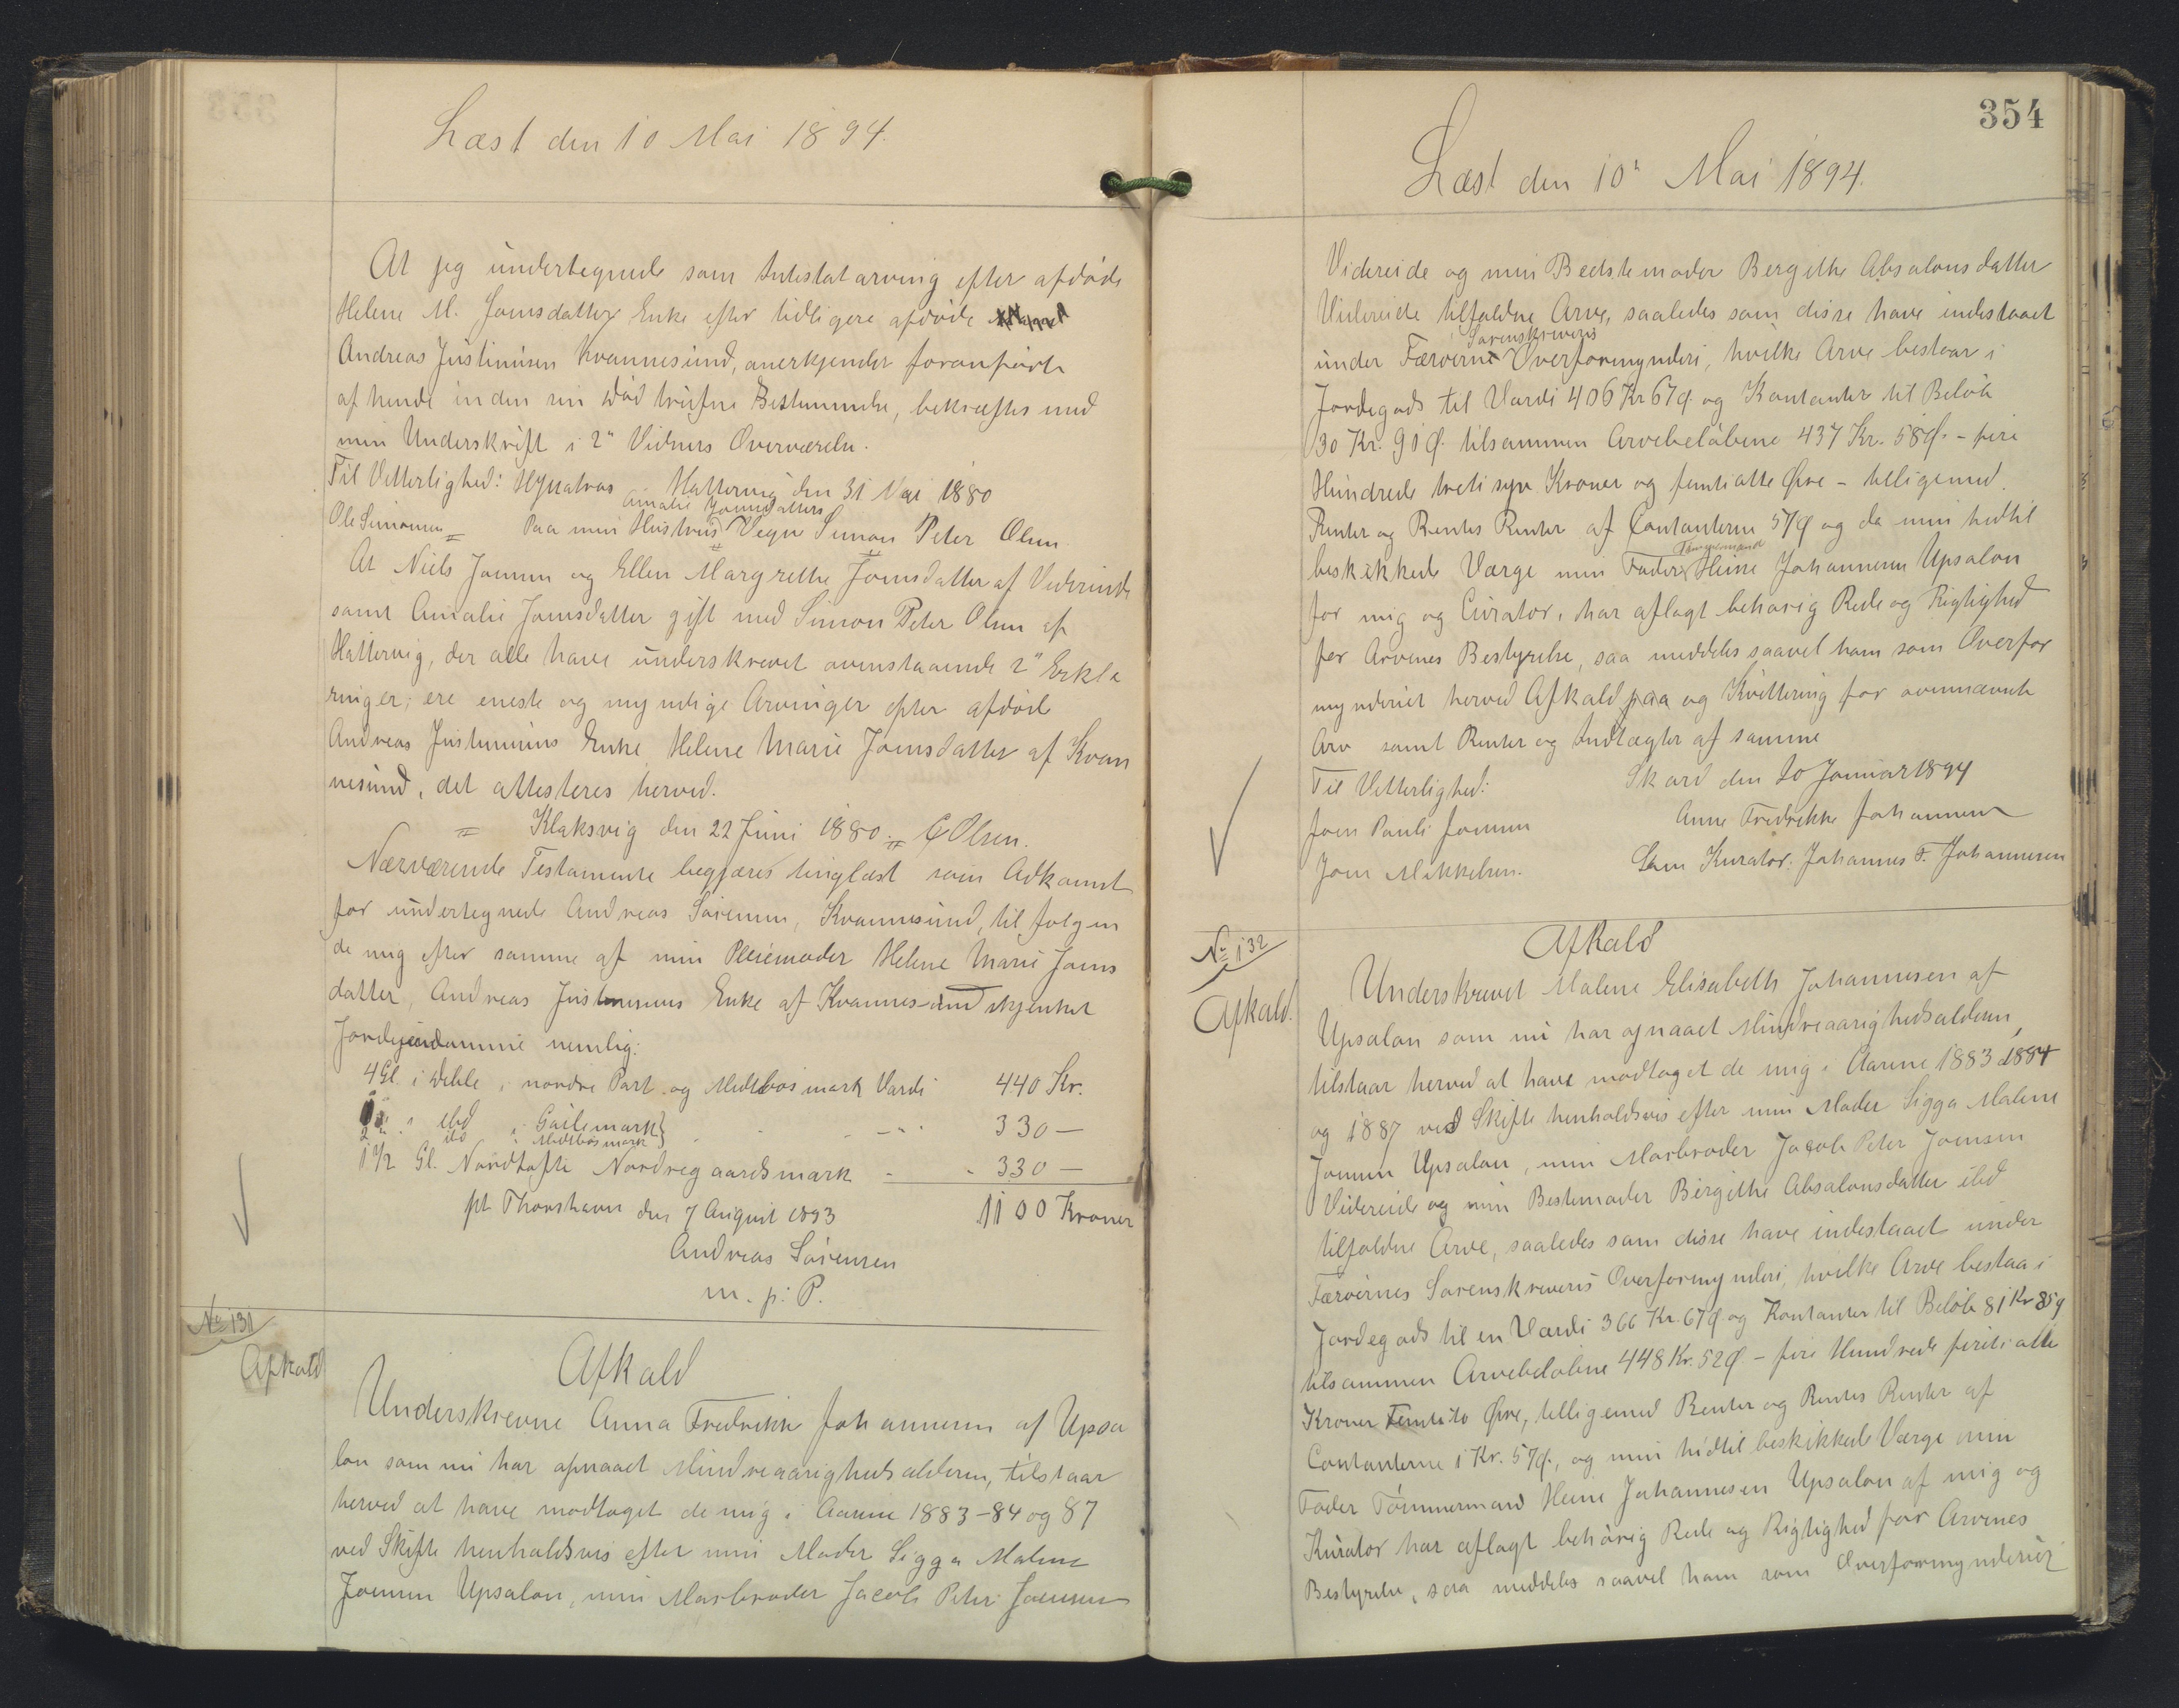 Læst den 10 Mai 1894.
At jeg undertegnede som Intestatarving efter afdøde
Helene M. Joensdatter Enke efter tidligere afdøde
Andreas Justinusen Kvannesund, anerkjender foranførte
af hende inden sin Død trufne Bestemmelse, bekræftes med
min Underskrift i 2" Vidners Overværelse.
Til Vitterlighed: Hattervig den 31 Mai 1880
Amalie Joensdatters
Ole Simonsen = Paa min Hustrues Vegne Simon Peter Olsen
At Niels Joensen og Ellen Margrethe Joensdatter af Viderejde
samt Amalie Joensdatter gift med Simon Peter Olsen af
Hattervig, der alle have underskrevet ovenstaaende 2" Erklæ
ringer, ere eneste og myndige Arvinger efter afdøde
Andreas Justinusens Enke Helene Marie Joensdatter af Kvan
nesund, det attesteres herved.
= Klaksvig den 22 Juni 1880. = C Olsen.
Nærværende Testamente begjæres tinglæst som Adkomst
for undertegnede Andreas Sørensen, Kvannesund, til følgen
de mig efter samme af min Pleiemoder Helene Marie Joens
datter, Andreas Justinusens Enke af Kvannesund skjenket
Jordejendomme nemlig:
4 Gl. i Deble i nordre Part og Midtbøsmark Værdi 440 Kr.
1 " " ibd i Gailemark
2 " " ibd " Midtbøsmark } - " - 330 —
1 1/2 Gl. Nordtofte Nordregaardsmark - - 330 —
pt Thorshavn den 7 August 1893 1100 Kroner
Andreas Sørensen
m. p: P.
No 131
Afkald
Afkald
Underskrevne Anna Fredrikke Johannesen af Upsa
lon som nu har opnaaet Mindreaarighedsalderen, tilstaar
herved at have modtaget de mig i Aarene 1883-84 og 87
ved Skifte henholdsvis efter min Moder Sigga Malene
Joensen Upsalon, min Morbroder Jacob Peter Joensen
354
Læst den 10" Mai 1894.
Videreide og min Bedstemoder Bergithe Absalonsdatter
Videreide tilfaldne Arve, saaledes som disse have indestaaet
Sorenskriveris
under Færøerne Overformynderi, hvilke Arve bestaar i
Jordegods til Værdi 406 Kr 67 Ø. og Kontanter til Beløb
30 Kr. 90 Ø. tilsammen Arvebeløbene 437 Kr. 58 Ø. - fire
Hundrede treti syv Kroner og femtiotte Øre - telligemed
Renter og Rentes Renter af Contanterne 57 Ø og da min hidtil
Tømmermand
beskikkede Værge min Fader Heine Johannesen Upsalon
for mig og Curator, har aflagt behørig Rede og Rigtighed
for Arvenes Bestyrelse, saa meddeles saavel ham som Overfor
mynderiet herved Afkald paa og Kvittering for ovennævnte
Arv samt Renter og Indtægter af samme
Til Vitterlighed: Skard den 20 Januar 1894
Joen Pauli Joensen Anne Fredrikke Johannesen
Joen Mikkelsen. Som Kurator. Johannes F. Johannesen
No 132
Afkald.
Afkald
Underskrevet Malene Elisabeth Johannesen af
Upsalon som nu har opnaaet Mindreaarighedsalderen,
tilstaar herved at have modtaget de mig i Aarene 1883 1884
og 1887 ved Skifte henholdsvis efter min Moder Sigga Malene
Joensen Upsalon, min Morbroder Jacob Peter Joensen
Videreide og min Bestemoder Birgithe Absalonsdatter ibd
tilfaldne Arve, saaledes som disse have indestaaet under
Færøernes Sorenskriveris Overformynderi, hvilke Arve bestaa i
Jordegods til en Værdi 366 Kr. 67 Ø. og Kontanter til Beløb 81 Kr 85 Ø
tilsammen Arvebeløbene 448 Kr. 52 Ø - fire Hundrede firti otte
Kroner Femti to Øre, telligemed Renter og Rentes Renter af
Contanterne 1 Kr. 57 Ø., og min hidtil beskikkede Værge min
Fader Tømmermand Heine Johannesen Upsalon af mig og
Kurator har aflagt behørig Rede og Rigtighed for Arvenes
Bestyrelse, saa meddeles saavel ham som Overformynderiet